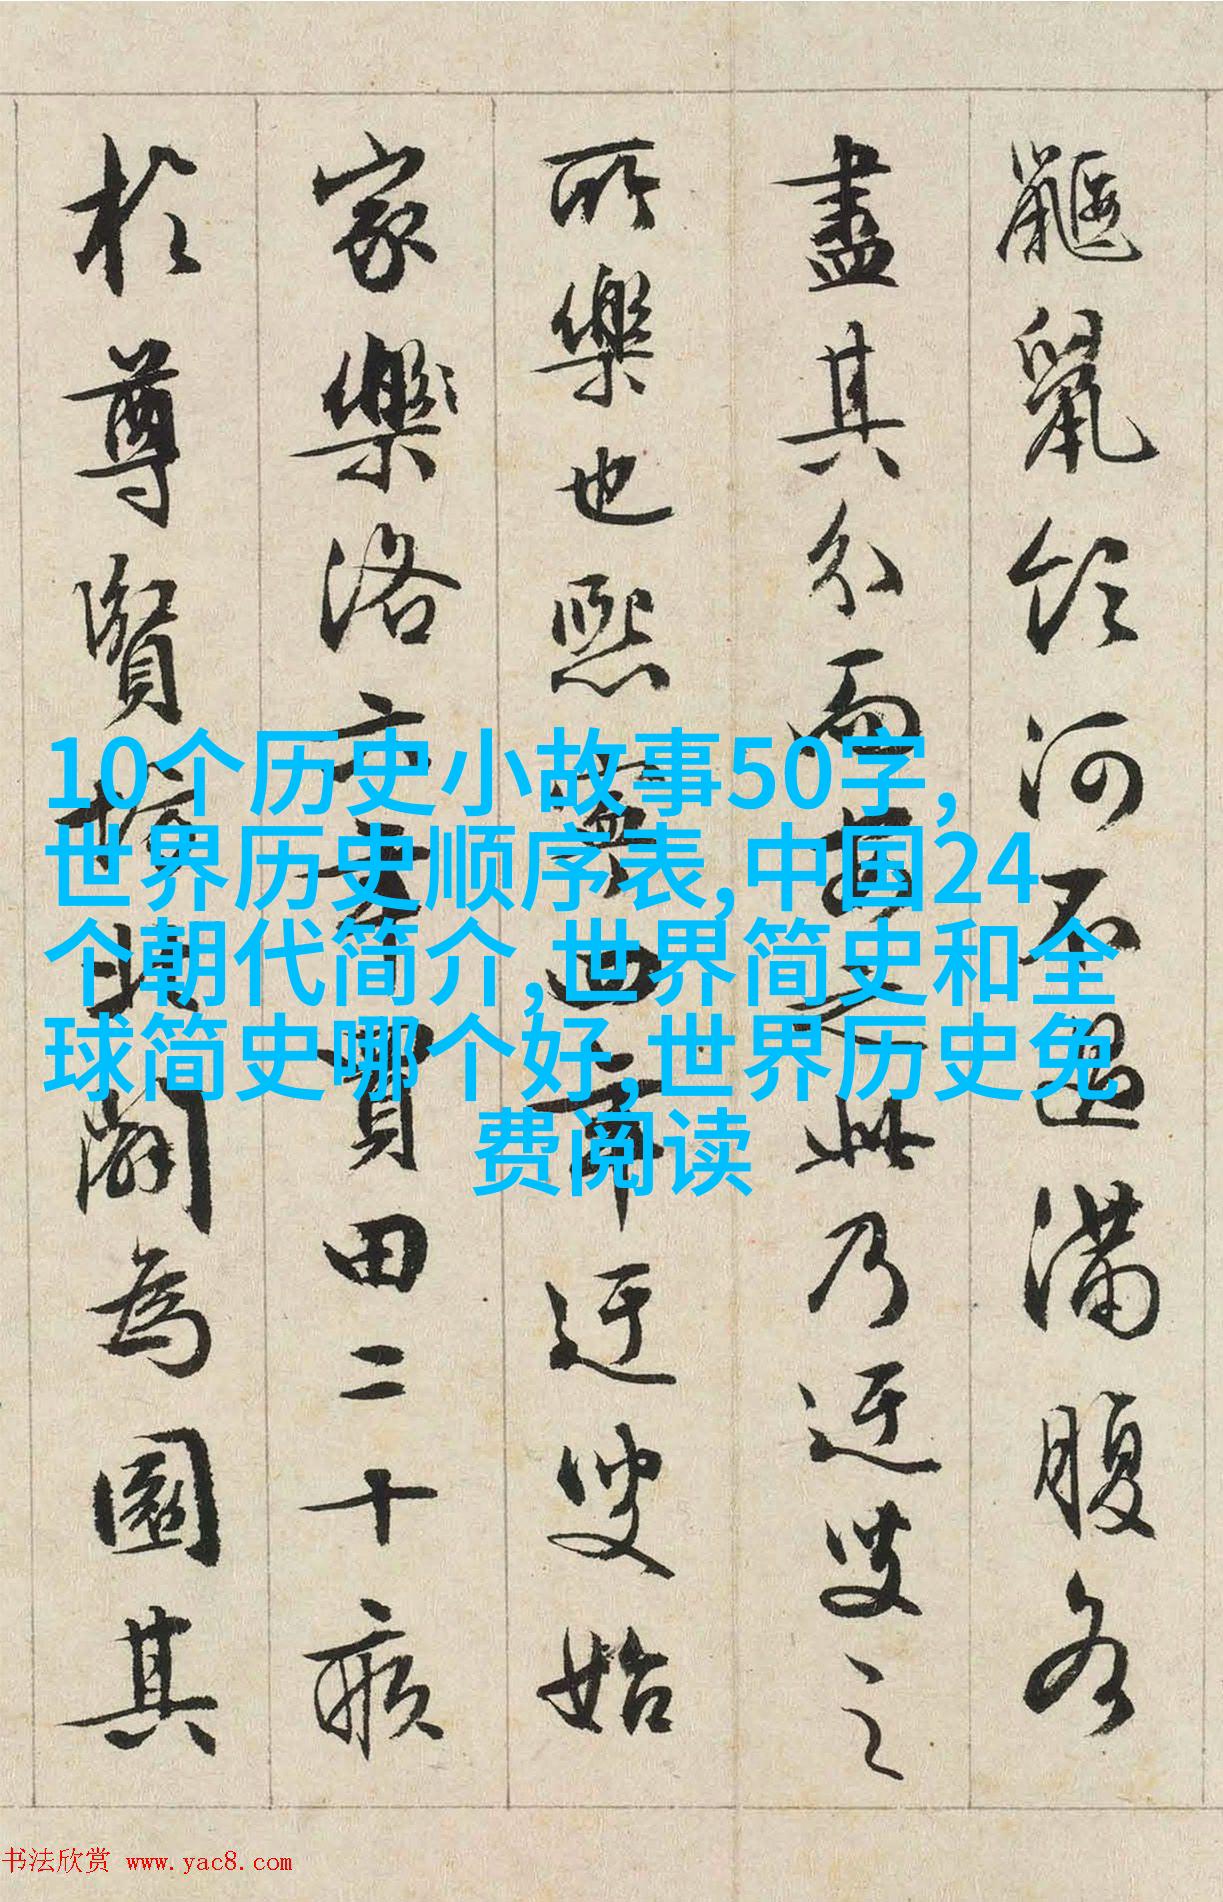 鼴鼠飲河不過滿腹各
盡其分而安之此乃迂叟之
所樂也熙寧四年迂叟始
家樂洛六年買田二十畝
於尊賢坊北闢為園其
10个历史小故事50字,
世界历史顺序表,中国24
个朝代简介,世界简史和全
球简史哪个好,世界历史免
费阅读
书法欣赏 www.yac8.com